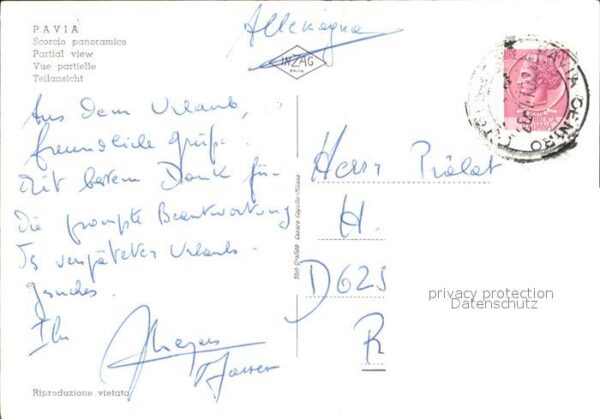 PAVIA
Scorcio panoramico
Partial view
Vue partielle
Teilansicht
Allemagna
INZAG
PAVIA
Aus dem Urlaub,
freundliche Grüße.
Mit bestem Dank für
die prompte Beantwortung
verspäteten Urlaubs-
Ihr
Pfarrer
Riproduzione vietata
Cesare Capello - Milano
Herr Prälat
H.
D 625
R
CENTRO
privacy protection
Datenschutz